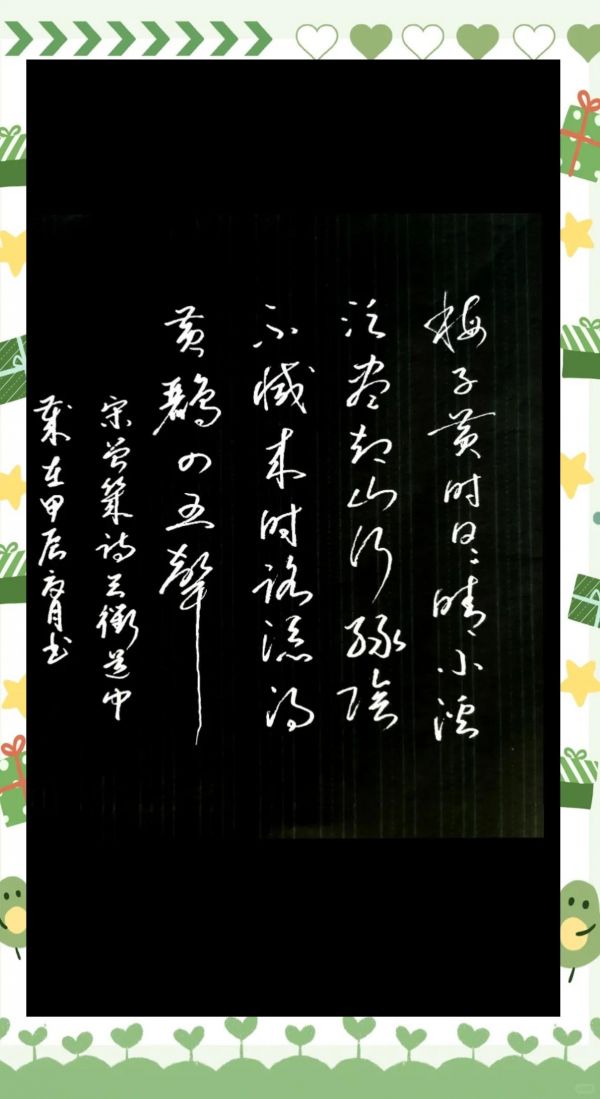 梅子黄时日日晴小溪
泛尽却山行绿陰
不减来时路添得
黄鹂四五聲
宋曾幾诗三衢道中
歲在甲辰夏月书